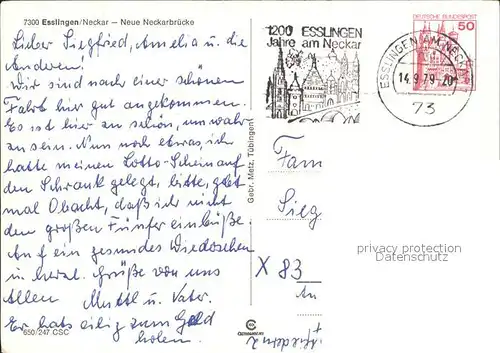 7300 Esslingen/Neckar — Neue Neckarbrücke
Lieber Siegfried, Amelia u. die
Anderen!
Wir sind nach einer schönen
Fahrt hier gut angekommen.
Es ist hier zu schön, um wahr
zu sein. Nun noch etwas, ich
hatte meinen Lotto-Schein auf
den Schrank gelegt, bitte, gebt
mal Obacht, daß ich nicht
den großen Fünfer einbüße.
Auf ein gesundes Wiedersehen
u. herzl. Grüße von uns
Allen Mutti u. Vater.
Er hats eilig zum Geld
holen.
650/247 CSC
Gebr. Metz, Tübingen
1200 ESSLINGEN
Jahre am Neckar
ESSLINGEN AM NECKAR
14.9.79-20
73
DEUTSCHE BUNDESPOST
50
Fam
Sieg
X 83
An
privacy protection
Datenschutz